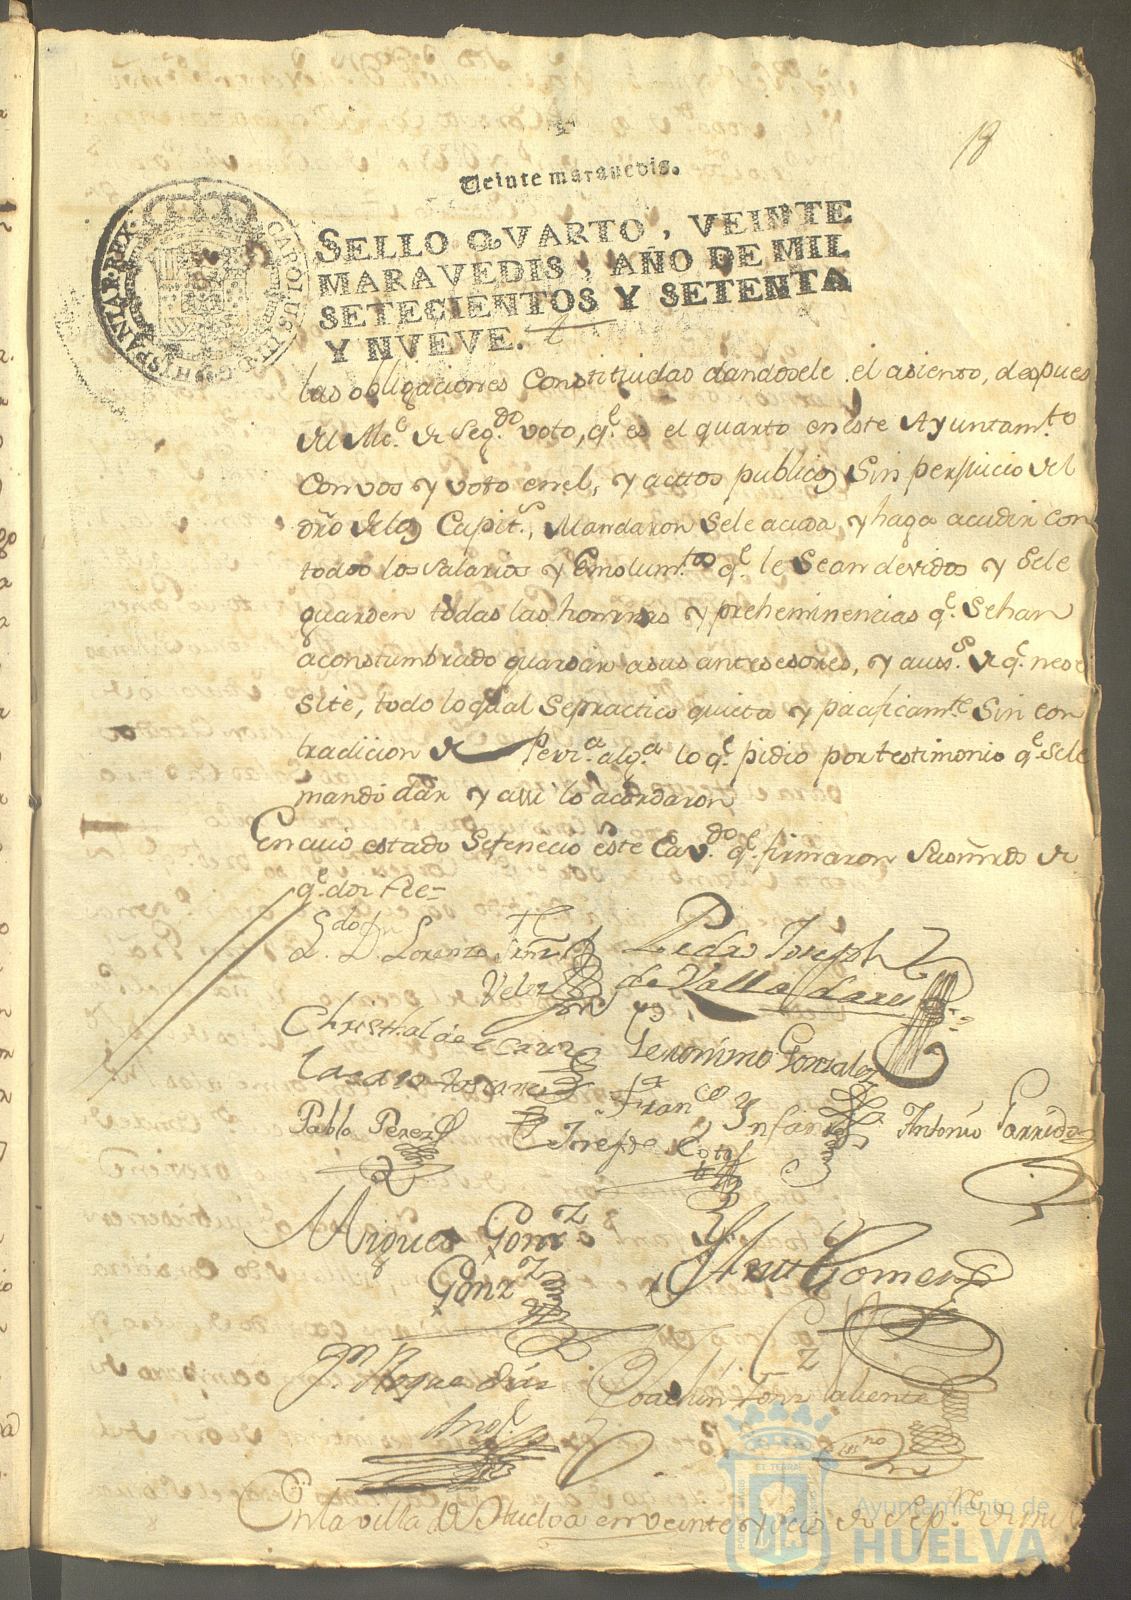 18
Veinte maravedis.
SELLO QVARTO, VEINTE
MARAVEDIS, AÑO DE MIL
SETECIENTOS Y SETENTA
Y NVEVE.
CAROLUS III D. G. HISPANIAR. REX.
las obligaciones Constituidas dandosele el asiento, despues
del Alce. de Segdo. voto, qe. es el quarto en este Ayuntamto.
con vos y voto en el, y actos publicos Sin perjuicio del
dro de los Capits., Mandaron se le acuda y haga acudir con
todos los salarios y Emolumtos. qe. le Sean devidos y Sele
guarden todas las honrras y preheminencias qe. se han
acostumbrado guardar a sus antesesores, y de qe. nese
site, todo lo qual Sepractico quieta y pacificamte. Sin con
tradicion de algª. lo qe. pidio por testimonio qe. Sele
mando dar y assi lo acordaron
En cuio estado Sefenecio este Cavdo. qe. firmaron Sus mrds de
qe. doi fee=
Ldo. Dn. Lorenzo
Velez
Pedro Joseph
de Valladares
Christhal de
Geronimo Gonzalez
Pablo Perez
Franco. Infante
Antonio Garrido
Joseph de Coto
Miguel Gonz
Gonz
Gomez
Jn. Roque Diaz
Joachin
En la villa de Huelva en veinte y seis de Sepre. de mil
Ayuntamiento de
HUELVA